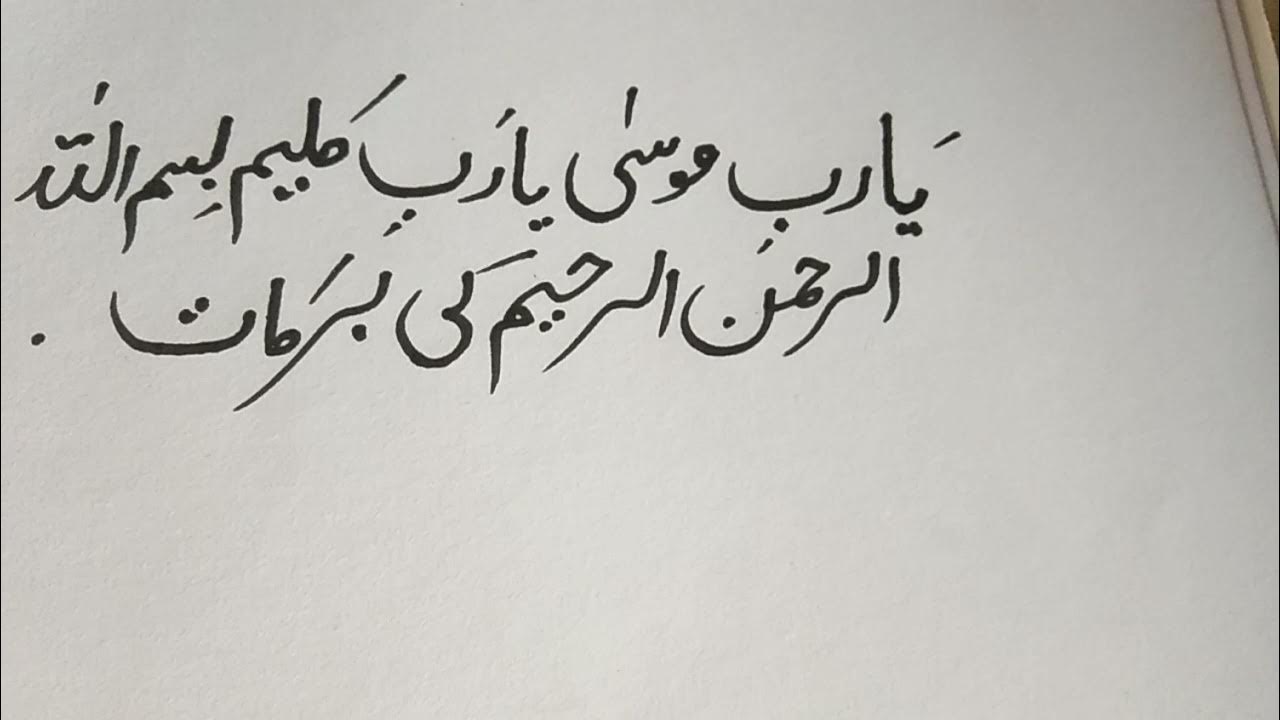 یَارب موسیٰ یا رَبِ کلیم بِسم اللّٰہ
الرحمَن الرحیم کی بَرَکات .